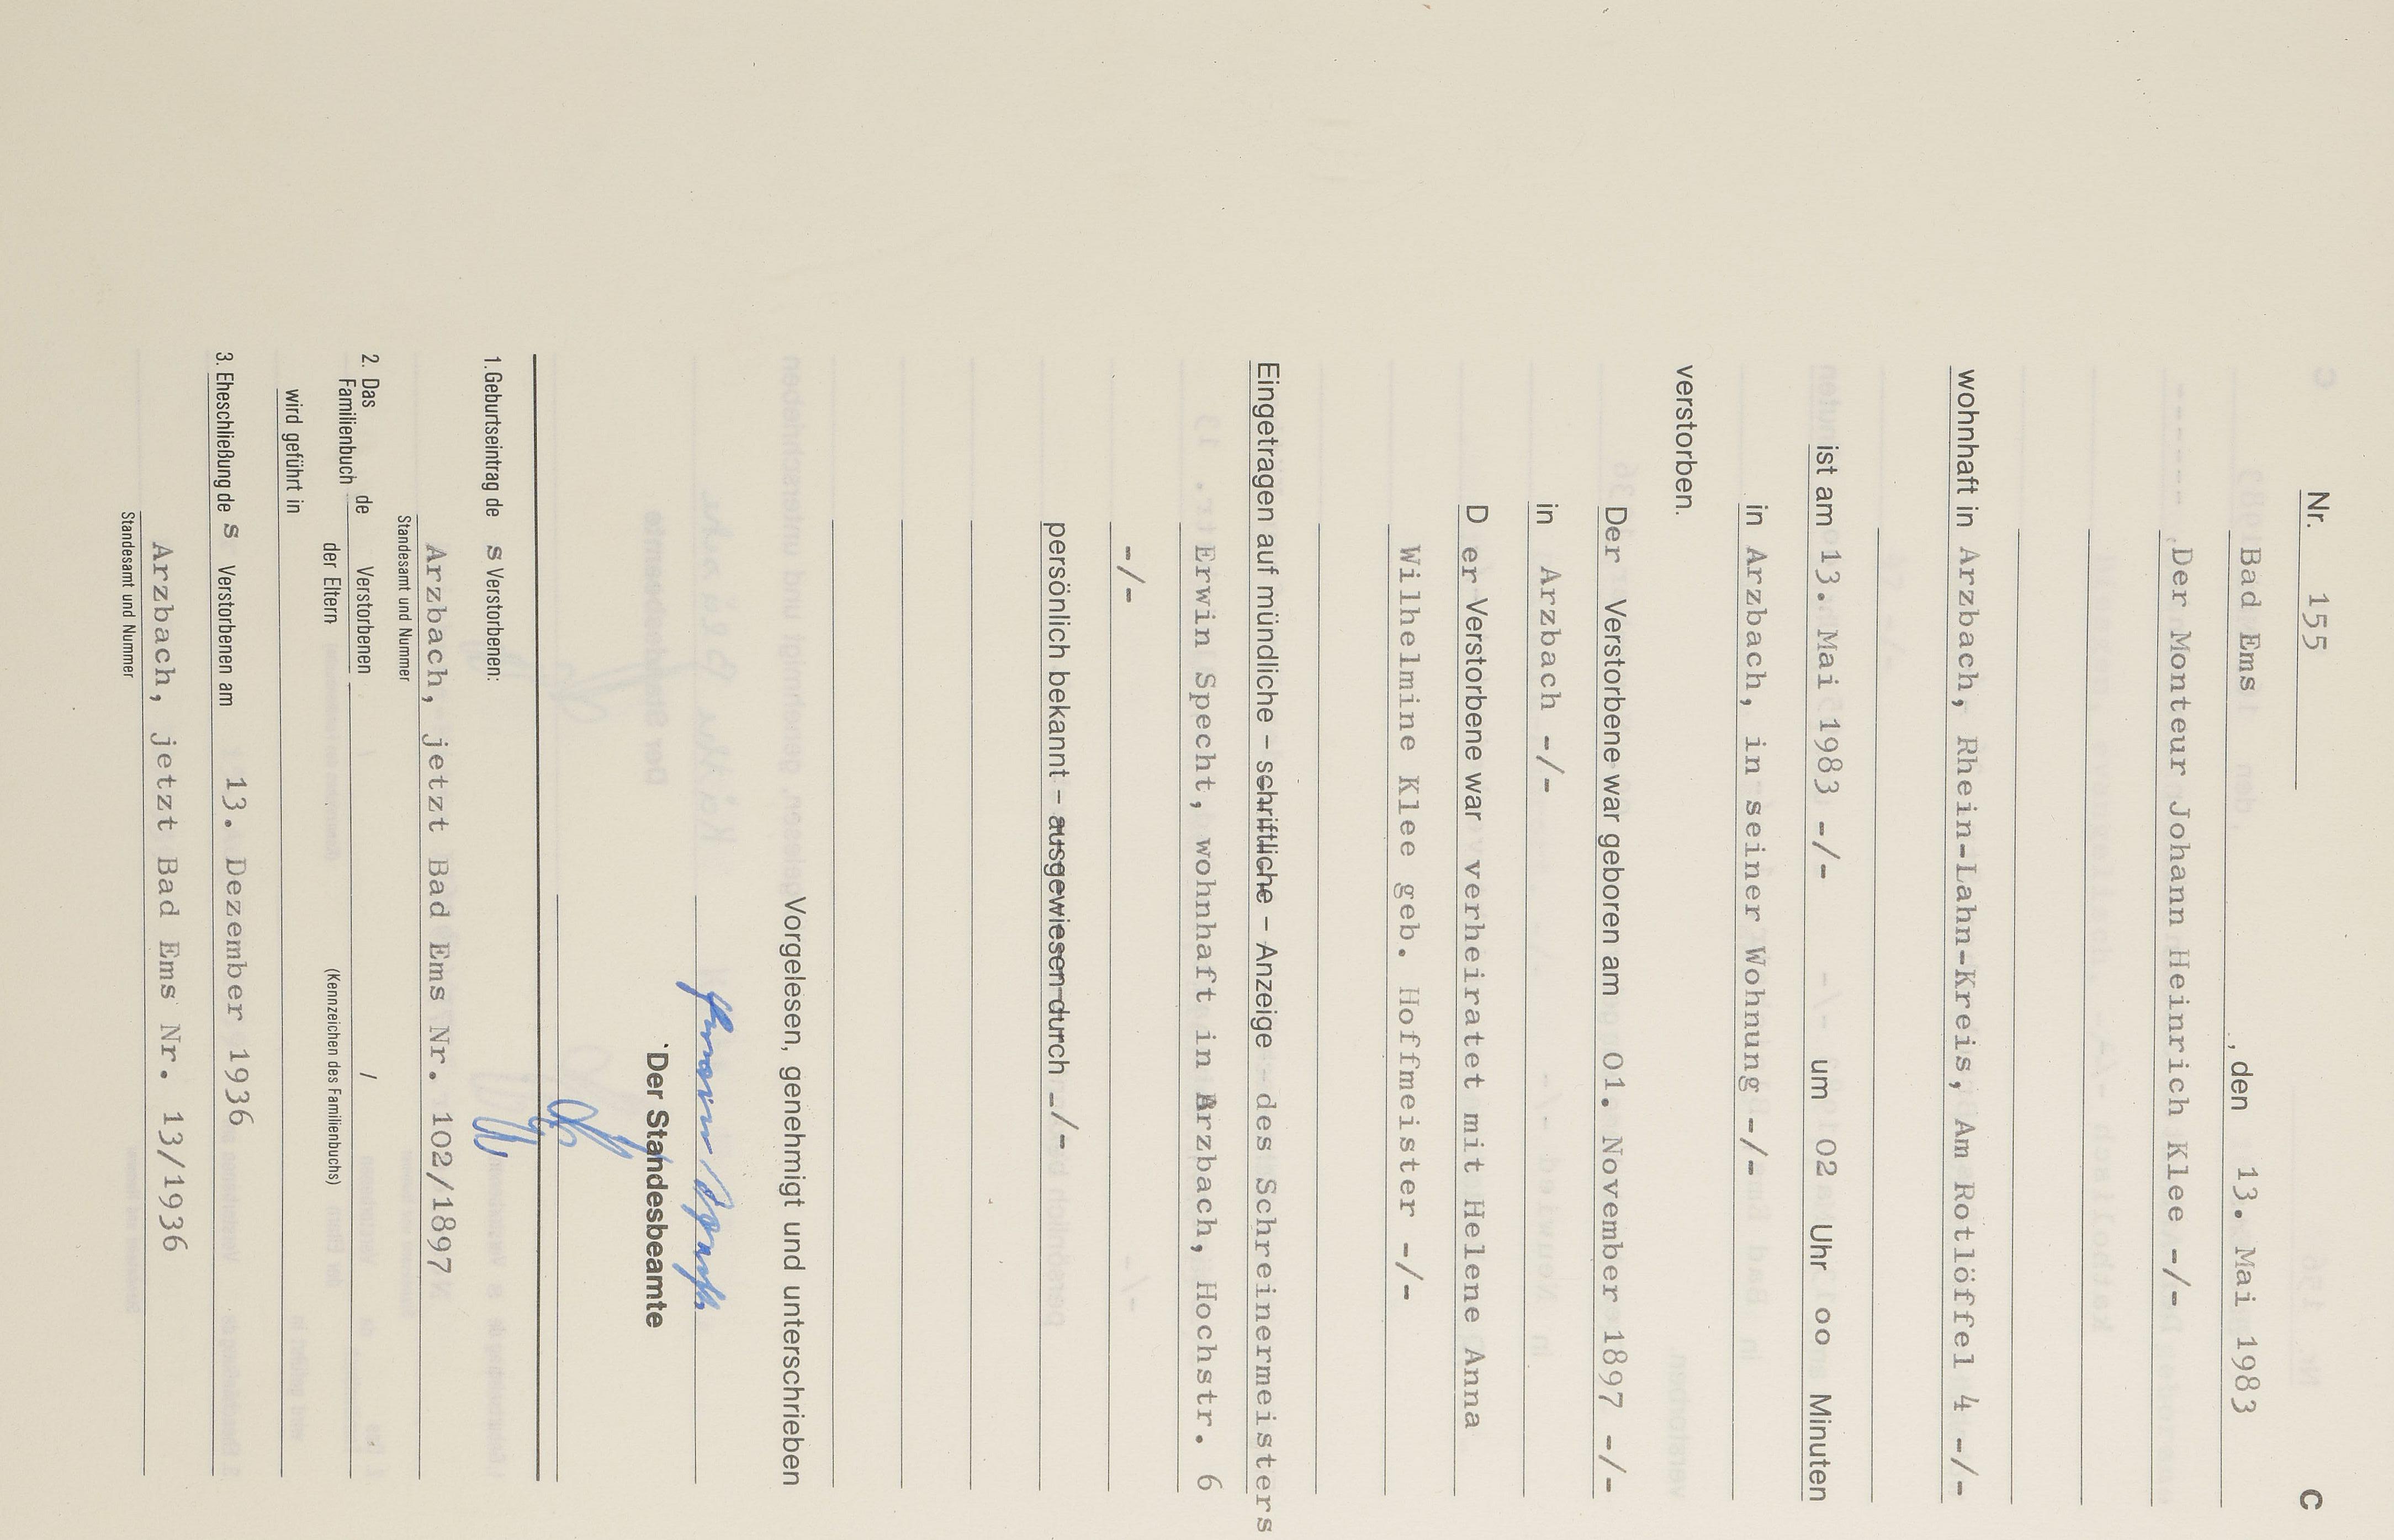 Nr. 155 C
Bad Ems , den 13. Mai 1983
Der Monteur Johann Heinrich Klee -/-
wohnhaft in Arzbach, Rhein-Lahn-Kreis, Am Rotlöffel 4 -/-
ist am 13. Mai 1983 -/- um 02 Uhr oo Minuten
in Arzbach, in seiner Wohnung -/-
verstorben.
Der Verstorbene war geboren am 01. November 1897 -/-
in Arzbach -/-
D er Verstorbene war verheiratet mit Helene Anna
Wilhelmine Klee geb. Hoffmeister -/-
Eingetragen auf mündliche – schriftliche – Anzeige des Schreinermeisters
Erwin Specht, wohnhaft in Arzbach, Hochstr. 6
-/-
persönlich bekannt – ausgewiesen durch -/-
Vorgelesen, genehmigt und unterschrieben
Erwin Specht
Der Standesbeamte
1. Geburtseintrag de s Verstorbenen:
Arzbach, jetzt Bad Ems Nr. 102/1897
Standesamt und Nummer
2. Das Familienbuch de Verstorbenen /
der Eltern (Kennzeichen des Familienbuchs)
wird geführt in
3. Eheschließung de s Verstorbenen am 13. Dezember 1936
Arzbach, jetzt Bad Ems Nr. 13/1936
Standesamt und Nummer